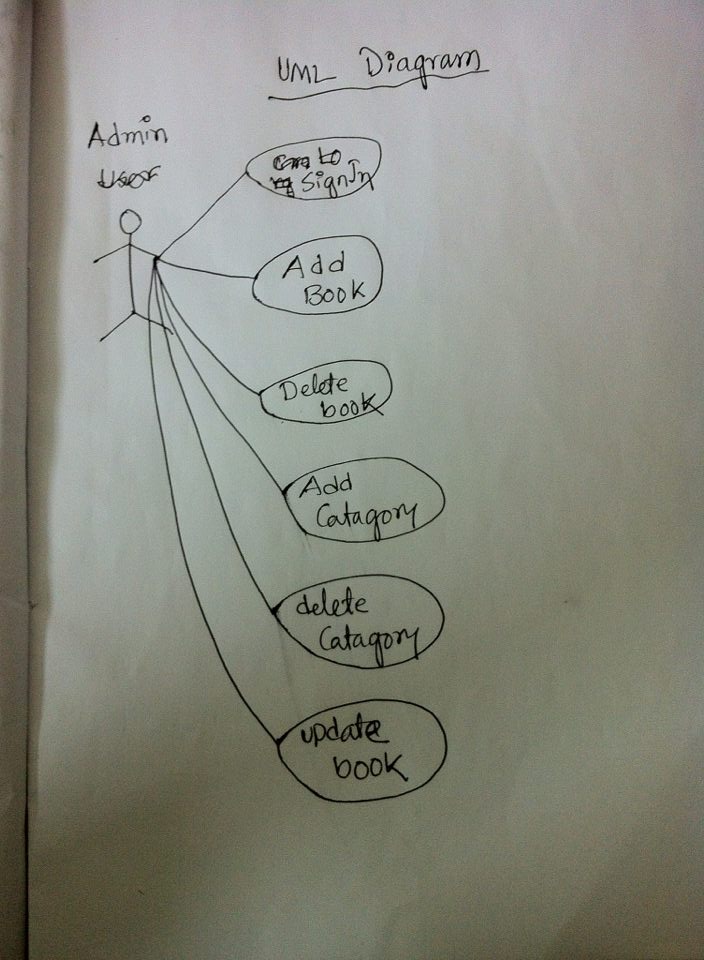 UML Diagram
Admin
User
SignIn
Add
Book
Delete
book
Add
Catagory
delete
Catagory
update
book